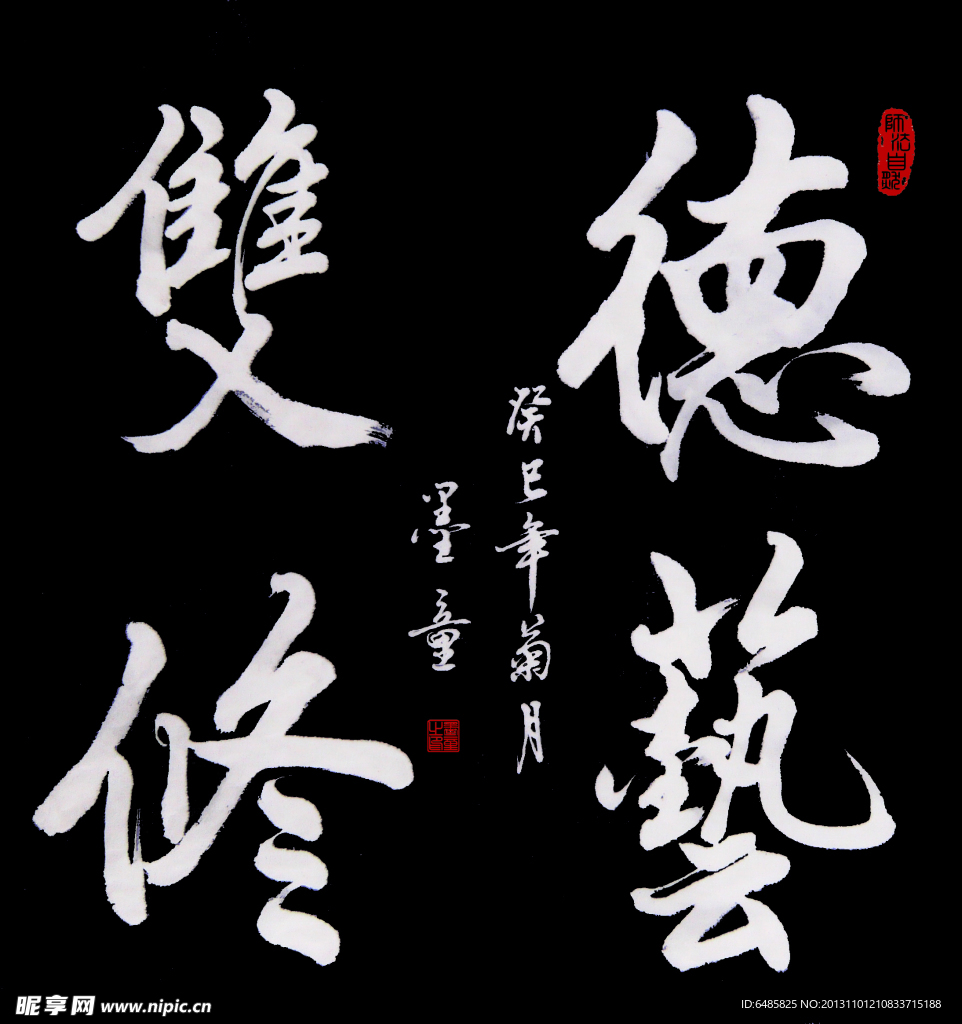 德藝
雙修
癸巳年菊月
墨童
師法自然
昵享网 www.nipic.cn
ID:6485825 NO:20131101210833715188